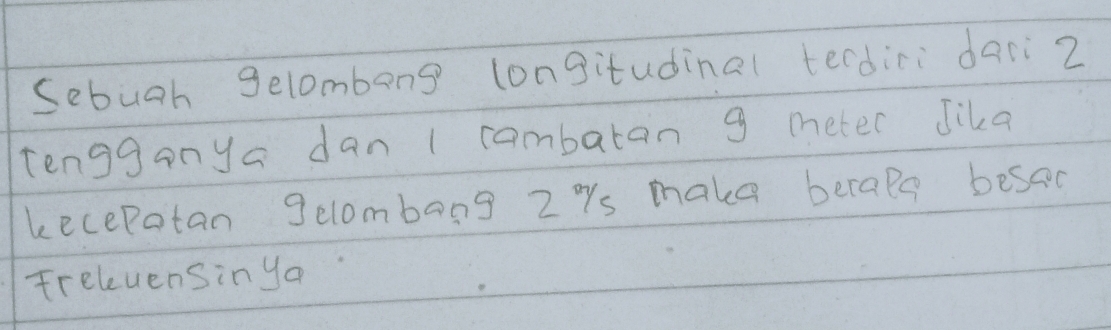 Sebuah gelombang longitudinal terdiri dari 2
rengganya dan 1 rambatan 9 meter Jika
kecepatan gelombang 2 m/s maka berapa besar
Frekuensinya